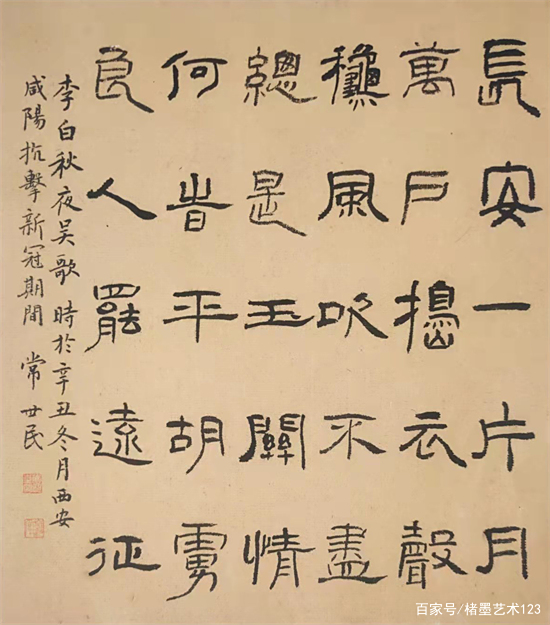 長安一片月
萬戶搗衣聲
龝風吹不盡
總是玉關情
何旹平胡虜
良人罷遠征
李白秋夜吴歌 時於辛丑冬月西安
咸陽抗擊新冠期間 常世民
百家号/楮墨艺术123